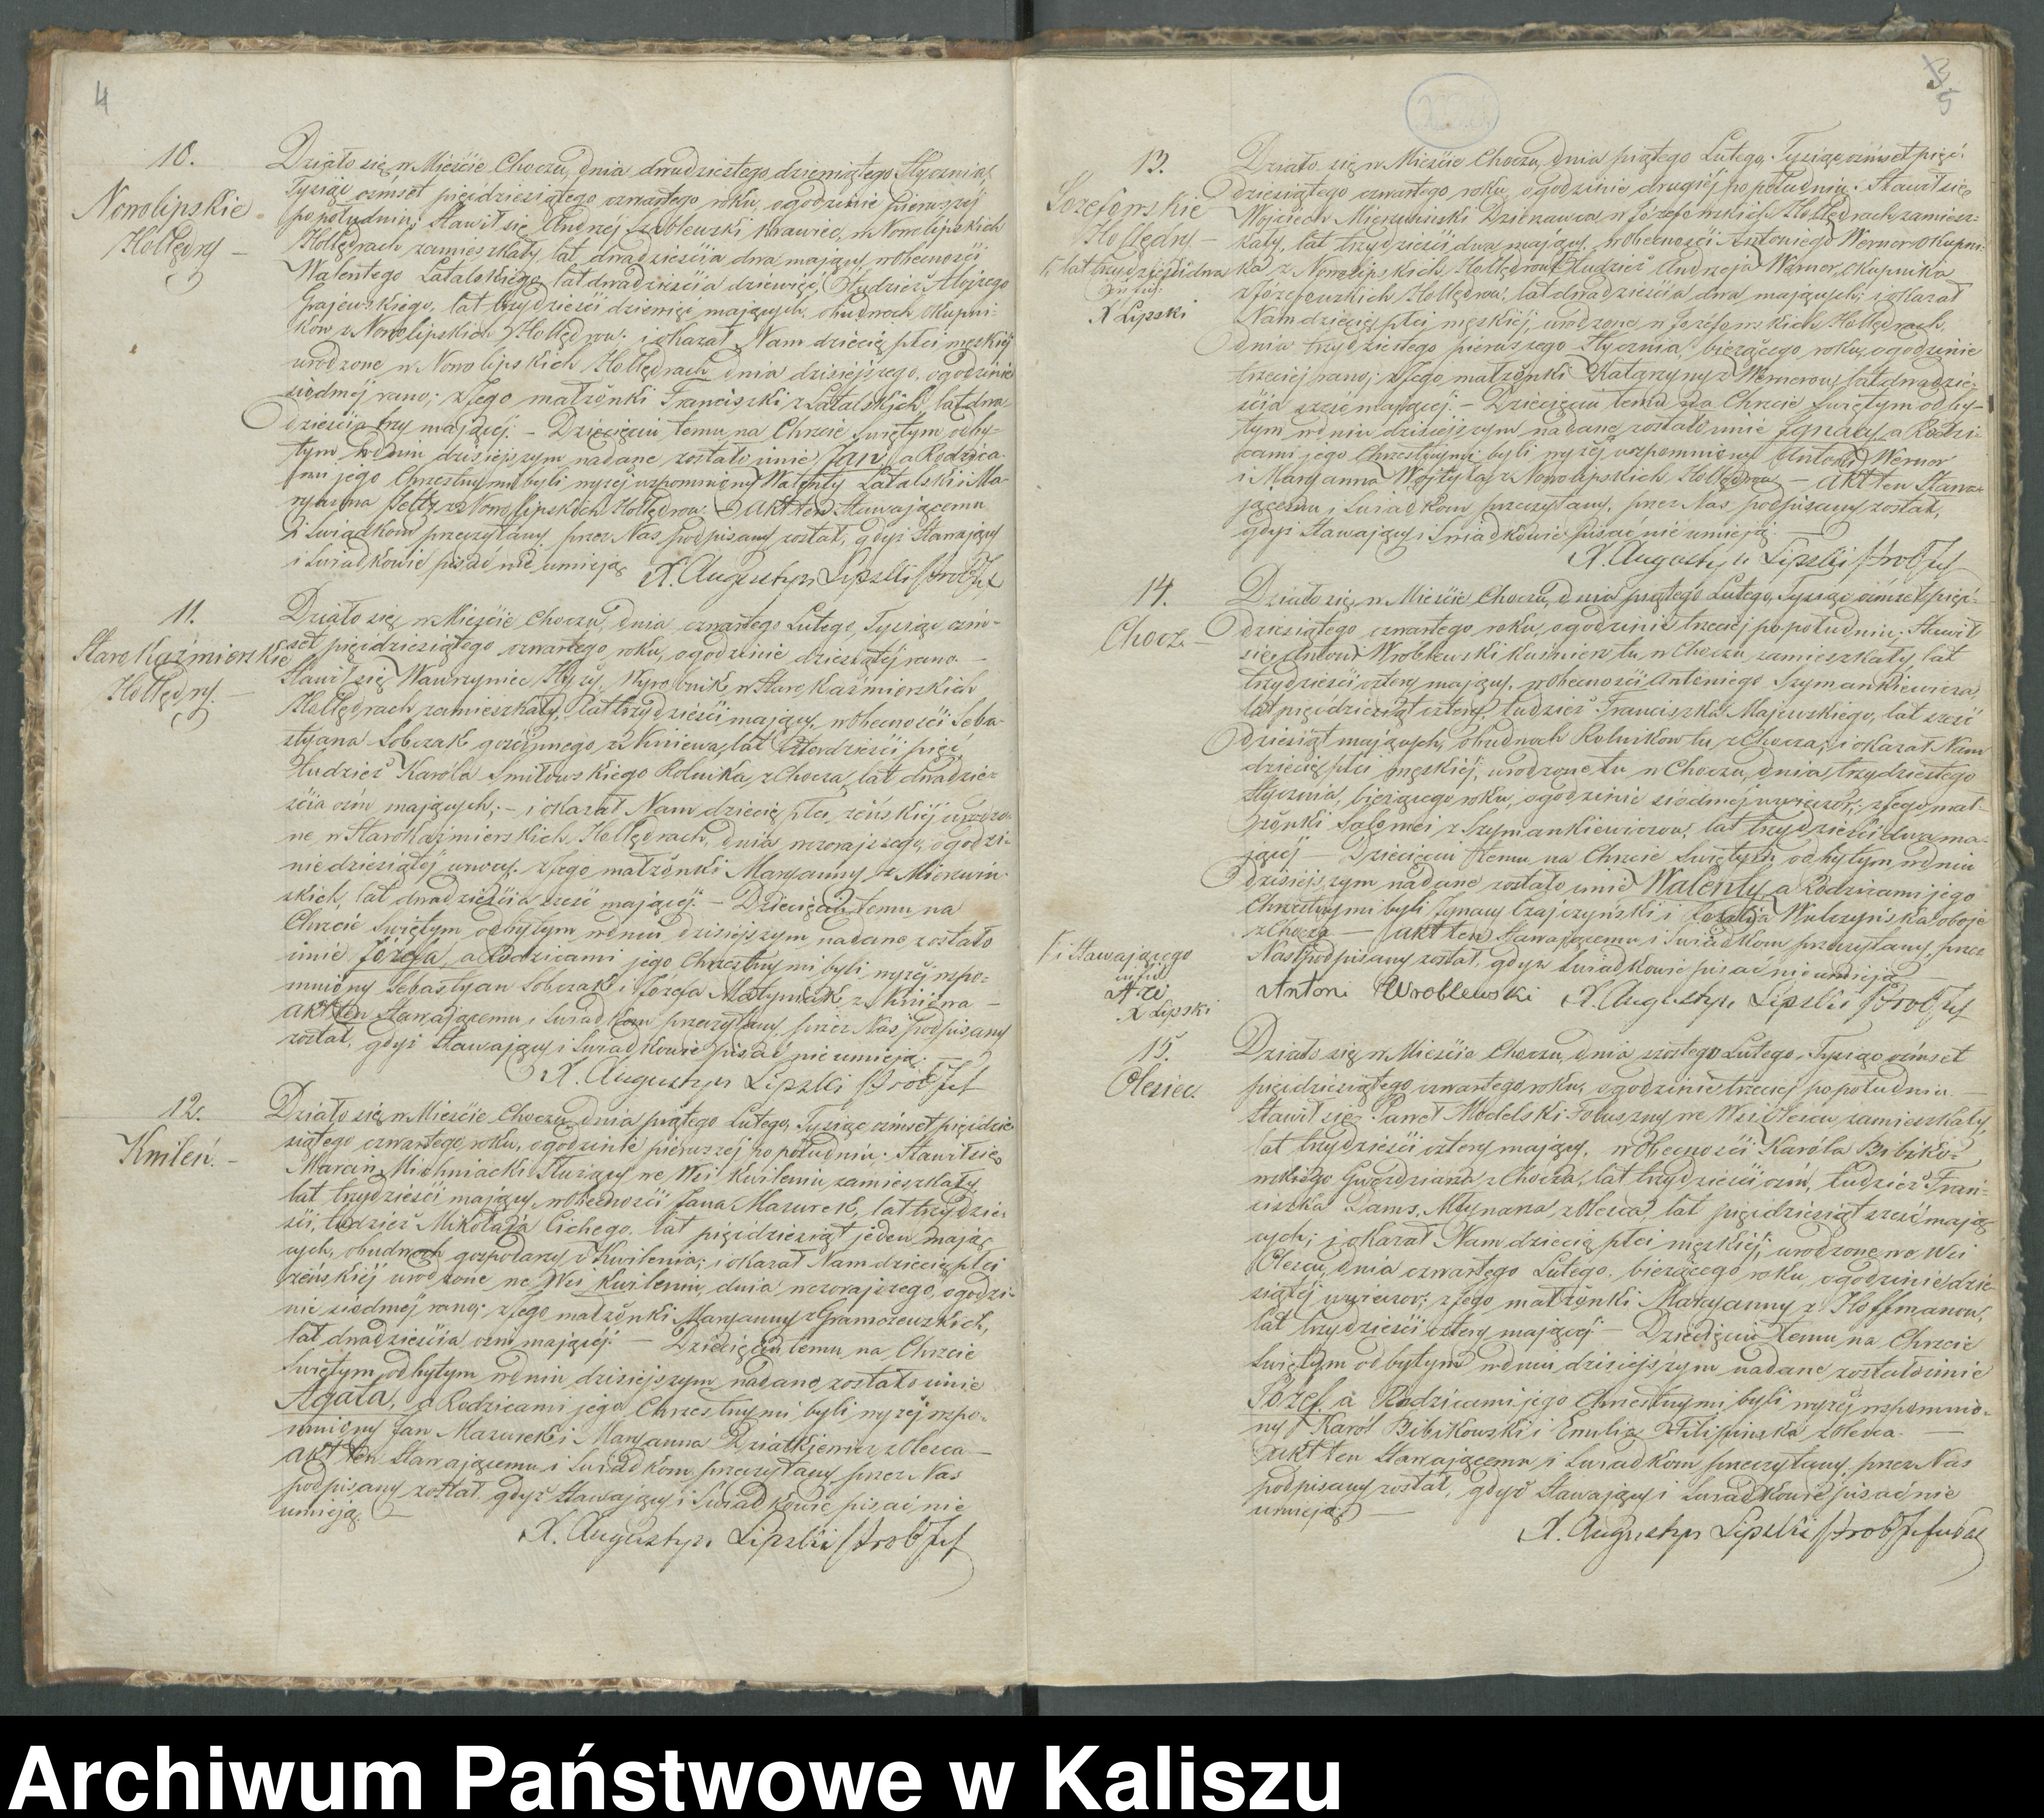 4
10.
Nowolipskie
Hollędry —
Działo się w Mieście Choczu, dnia dwudziestego dziewiątego Stycznia,
Tysiąc ośmset pięćdziesiątego czwartego roku, o godzinie pierwszej
po południu; Stawił się Andrzéj Szablewski krawiec, w Nowolipskich
Hollędrach zamieszkały, lat dwadzieścia dwa mający, w obecności
Walentego Latalskiego, lat dwadzieścia dziewięć, Tudzież Alojzego
Gajewskiego, lat trzydzieści dziewięć mających, obudwóch Okupni-
ków z Nowolipskich Hollędrów; i okazał Nam dziecię płci męzkiéj
urodzone w Nowolipskich Hollędrach, dnia dzisiejszego, o godzinie
siódméj rano; z Jego małżonki Franciszki z Latalskich, lat dwa-
dzieścia trzy mającéj. — Dziecięciu temu na Chrzcie Świętym odby-
tym w dniu dzisiejszym nadane zostało imie Jan, a Rodzica-
mi jego Chrzestnymi byli wyżéj wspomniony Walenty Latalski i Ma-
ryanna z Nowolipskich Hollędrów. — Akt ten Stawającemu
i Świadkom przeczytany, przez Nas podpisany został, gdyż Stawający
i Świadkowie pisać nie umieją. X. Augustyn Lipski Prob
11.
Staro Kaźmierskie
Hollędry. —
Działo się w Mieście Choczu, dnia czwartego Lutego, Tysiąc ośm-
set pięćdziesiątego czwartego roku, o godzinie dziesiątéj rano. —
Stawił się Wawrzyniec Wyrobnik, w Staro Kaźmierskich
Hollędrach zamieszkały, lat trzydzieści mający, w obecności Seba-
styana Sobczak gościnnego, z Kniewa, lat czterdzieści pięć,
Tudzież Karóla Smiłowskiego Rolnika z Chocza, lat dwadzie-
ścia ośm mających; — i okazał Nam dziecię płci żeńskiéj urodzo-
ne, w Staro Kaźmierskich Hollędrach, dnia wczorajszego, o godzi-
nie dziesiątéj w nocy, z Jego małżonki Maryanny z Mierzwiń-
skich, lat dwadzieścia sześć mającéj. — Dziecięciu temu na
Chrzcie Świętym odbytym w dniu dzisiejszym nadane zostało
imie Józefa, a Rodzicami jego Chrzestnymi byli wyżéj wspo-
mniony Sebastyan Sobczak i Józefa Matyniak z Kniewa —
Akt ten Stawającemu i Świadkom przeczytany, przez Nas podpisany
został, gdyż Stawający i Świadkowie pisać nie umieją. —
X. Augustyn Lipski Prob
12.
Kwileń. —
Działo się w Mieście Choczu, dnia piątego Lutego, Tysiąc ośmset pięćdzie-
siątego czwartego roku, o godzinie pierwszéj po południu; Stawił się
Marcin Michniacki Służący we Wsi Kwileniu zamieszkały,
lat trzydzieści mający, w obecności Jana Mazurek, lat trzydzie-
ści, tudzież Mikołaja Cichego, lat pięćdziesiąt jeden mają-
cych, obudwóch gospodarzy z Kwilenia; i okazał Nam dziecię płci
żeńskiéj urodzone we Wsi Kwileniu, dnia wczorajszego, o godzi-
nie siódméj rano; z Jego małżonki Maryanny z Gramczewskich,
lat dwadzieścia ośm mającéj. — Dziecięciu temu na Chrzcie
Świętym odbytym w dniu dzisiejszym, nadane zostało imie
Agata, a Rodzicami jego Chrzestnymi byli wyżéj wspo-
mniony Jan Mazurek i Maryanna Działkiewicz z Olesca —
Akt ten Stawającemu i Świadkom przeczytany, przez Nas
podpisany został, gdyż Stawający i Świadkowie pisać nie
umieją. —
X. Augustyn Lipski Prob
5
13.
Józefowskie
Hollędry. —
lat trzydzieści dwa
X Lipski
Działo się w Mieście Choczu, dnia piątego Lutego, Tysiąc ośmset pięć-
dziesiątego czwartego roku, o godzinie drugiéj po południu; Stawił się
Wojciech Mierzwiński Dzierzawca w Józefowskich Hollędrach zamiesz-
kały, lat trzydzieści dwa mający, w obecności Antoniego Werner Okupni-
ka z Nowolipskich Hollędrów, Tudzież Andrzeja Werner, Okupnika
z Józefowskich Hollędrów, lat dwadzieścia dwa mających; i okazał
Nam dziecię płci męzkiéj, urodzone w Józefowskich Hollędrach,
dnia trzydziestego pierwszego Stycznia, bieżącego roku, o godzinie
trzeciéj rano; z Jego małżonki Katarzyny z Wernerów, lat dwadzie-
ścia sześć mającéj. — Dziecięciu temu na Chrzcie Świętym odby-
tym w dniu dzisiejszym nadane zostało imie Ignacy, a Rodzi-
cami jego Chrzestnymi byli wyżéj wspomniony Antoni Werner
i Maryanna Wojtyła z Nowolipskich Hollędrów — Akt ten Stawa-
jącemu i Świadkom przeczytany, przez Nas podpisany został,
gdyż Stawający i Świadkowie pisać nie umieją. —
X. Augustyn Lipski Prob
14.
Chocz. —
i Stawającego
X Lipski
Działo się w Mieście Choczu, dnia piątego Lutego, Tysiąc ośmset pięć-
dziesiątego czwartego roku, o godzinie trzeciéj po południu; Stawił
się Antoni Wroblewski Kuśnierz tu w Choczu zamieszkały, lat
trzydzieści cztery mający, w obecności Antoniego Szymankiewicza,
lat pięćdziesiąt cztery, tudzież Franciszka Majewskiego, lat sześć-
dziesiąt mających, obudwóch Rolników tu z Chocza; i okazał Nam
dziecię płci męzkiéj, urodzone tu w Choczu, dnia trzydziestego
Stycznia, bieżącego roku, o godzinie siódméj wieczór; z Jego mał-
żonki Salomei z Szymankiewiczów, lat trzydzieści dwa ma-
jącéj — Dziecięciu temu na Chrzcie Świętym odbytym w dniu
dzisiejszym nadane zostało imie Walenty, a Rodzicami jego
Chrzestnymi byli Ignacy Czajczyński i Wulczyńska oboje
z Chocza — Akt ten Stawającemu i Świadkom przeczytany, przez
Nas podpisany został, gdyż Świadkowie pisać nie umieją —
Antoni Wroblewski X. Augustyn Lipski Prob
15.
Olesiec.
Działo się w Mieście Choczu, dnia szóstego Lutego, Tysiąc ośmset
pięćdziesiątego czwartego roku, o godzinie trzeciéj po południu —
Stawił się Paweł Modelski Foluszny we Wsi Olescu zamieszkały,
lat trzydzieści cztery mający, w obecności Karóla Bibiko-
wskiego z Chocza, lat trzydzieści ośm, tudzież Fran-
ciszka Dams, Młynarza z Olesca, lat pięćdziesiąt sześć mają-
cych; i okazał Nam dziecię płci męzkiéj, urodzone we Wsi
Olescu, dnia czwartego Lutego, bieżącego roku, o godzinie dzie-
siątéj wieczor; z Jego małżonki Maryanny z Hoffmanów,
lat trzydzieści cztery mającéj — Dziecięciu temu na Chrzcie
Świętym odbytym w dniu dzisiejszym nadane zostało imie
Józef, a Rodzicami jego Chrzestnymi byli wyżéj wspomnio-
ny Karól Bibikowski i Emilia Filipinska z Olesca. —
Akt ten Stawającemu i Świadkom przeczytany, przez Nas
podpisany został, gdyż Stawający i Świadkowie pisać nie
umieją. —
X. Augustyn Lipski Prob
Archiwum Państwowe w Kaliszu